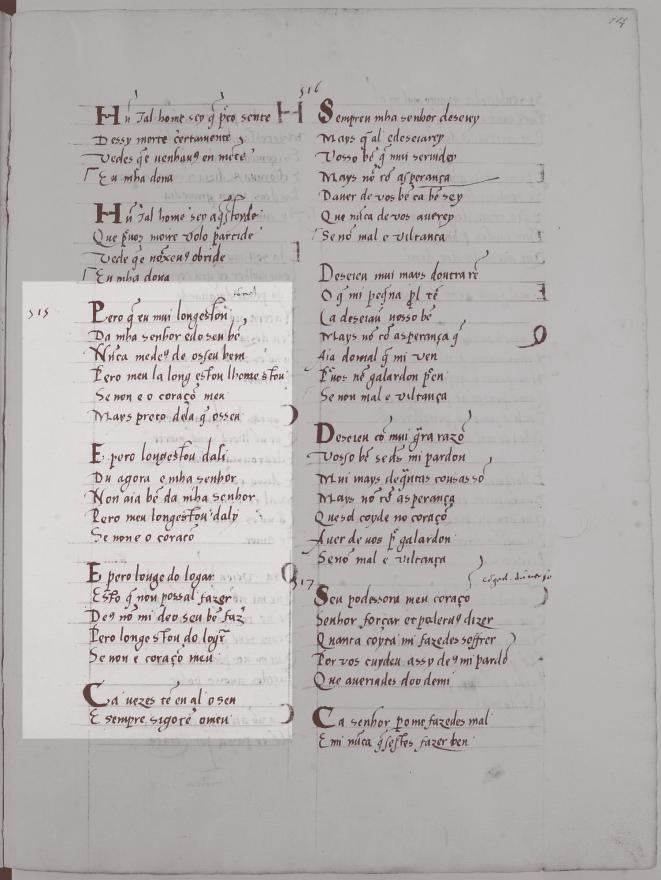 114
Hu tal home sey q̃ p̃to sente
Dessy morte certamente
Vedes q̃e
Eu mha dona
Hu tal home sey
Que moire
Vede q̃e
Eu mha dona
515
Pero q̃ eu mui long estou
Da mha senhor e do seu bẽ
Nunca me de9 de o sseu bem
Pero meu la long estou lhome stou
Se non e o coraçõ meu
Mays preto dela q̃ o sseu
E pero long estou dali
Du agora e mha senhor
Non aia bẽ da mha senhor
Pero meu long estou daly
Se non e o coraço
E pero longe do logar
Esto q̃ nõ possal fazer
De9 nõ mi de o seu bẽ faz
Pero long estou do logr̃
Se non e coraço meu
Ca vezes tẽ en al o sen
E sempre sigo tẽ o meu
516
Sempreu mha senhor deseiey
Mays q̃ al e deseiarey
Vosso bẽ q̃ mui servidey
Mays nõ cõ asperança
Daver de vos bẽ ca bẽ sey
Que nũca de vos averey
Se nõ mal e viltança
Deseieu mui mays doutra rẽ
O q̃ mi peq̃na p̃l tẽ
Ca deseiau vosso bẽ
Mays nõ cõ asperança q̃
Aia do mal q̃ mi ven
P̃ vos nẽ galardon p̃en
Se non mal e viltança
Deseieu cõ mui g̃ra razõ
Vosso bẽ se d̃s mi pardon
Mui mays de q̃ntas cousas sõ
Mays nõ cõ asperança
Que sol coyde no coraçõ
Aver de vos p̃ galardon
Se nõ mal e viltança
517
Seu podessora meu coraço
Senhor forçar et poderu9 dizer
Quanta coyta mi fazedes soffrer
Por vos cuydeu assy de9 mi pardõ
Que averiades doo de mi
Ca senhor p̃o me fazedes mal
E mi nũca q̃sestes fazer ben